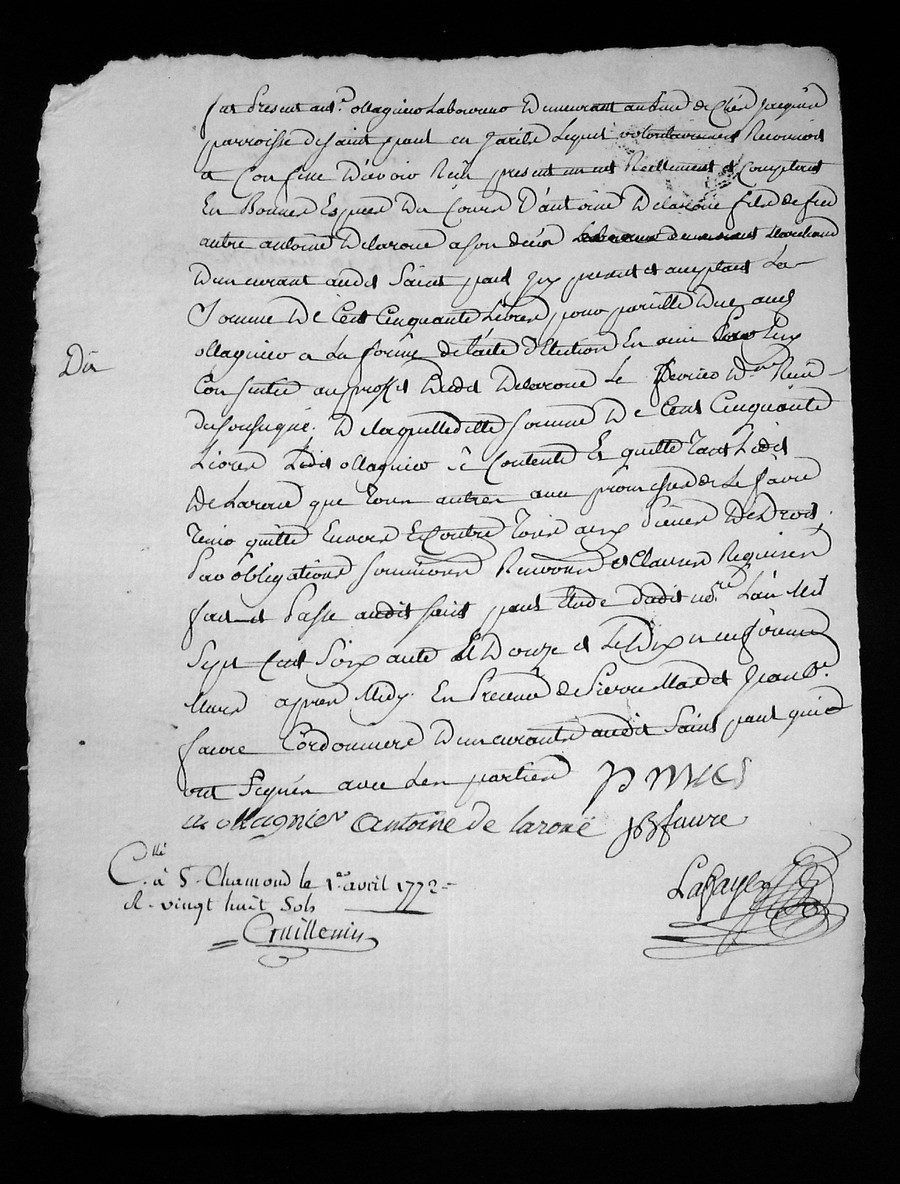 fut Present ant.e ollagnier Laboureur Demeurant au lieu de
parroisse de saint paul en Jarêts Lequel volontairement Reconnoit
a Confessé D'avoir Reçu presentement Reellement et Comptant
En Bonnes Espèces Du Cours D'antoine Delaroüe fils de feu
autre antoine Delaroüe a son décès Marchand
Demeurant audit Saint paul Icy present et acceptant La
Somme De Cent Cinquante Livres pour pareille Due audit
ollagnier a La forme de l'acte D'Election En ami
Du
Consentie au proffit Dudit Delaroüe Le fevrier Der Reçu
du soussigné. De laquelleditte somme De Cent Cinquante
Livres Ledit ollagnier se Contente Et quitte Tant Ledit
De Laroüe que Tous autres avec promesses de Le faire
Tenir quitte Envers Et Contre Tous aux peines De Droit,
Par obligations soumissions Renonons et Clauses Requises
fait et Passé audit saint paul Etude dudit no.re L'an Mil
Sept Cent Soixante Et Douze et Le Dix neufvieme
Mars apres Midy En Presence de Pierre Mard et Jean B.te
faure Cordonniers Demeurants audit Saint paul qui
ont signés avec Les parties
a ollagnier antoine de laroüe JB faure
Lafaye
C.llé à St. Chamond le 1er avril 1772
R. vingt huit sols
Guillemin